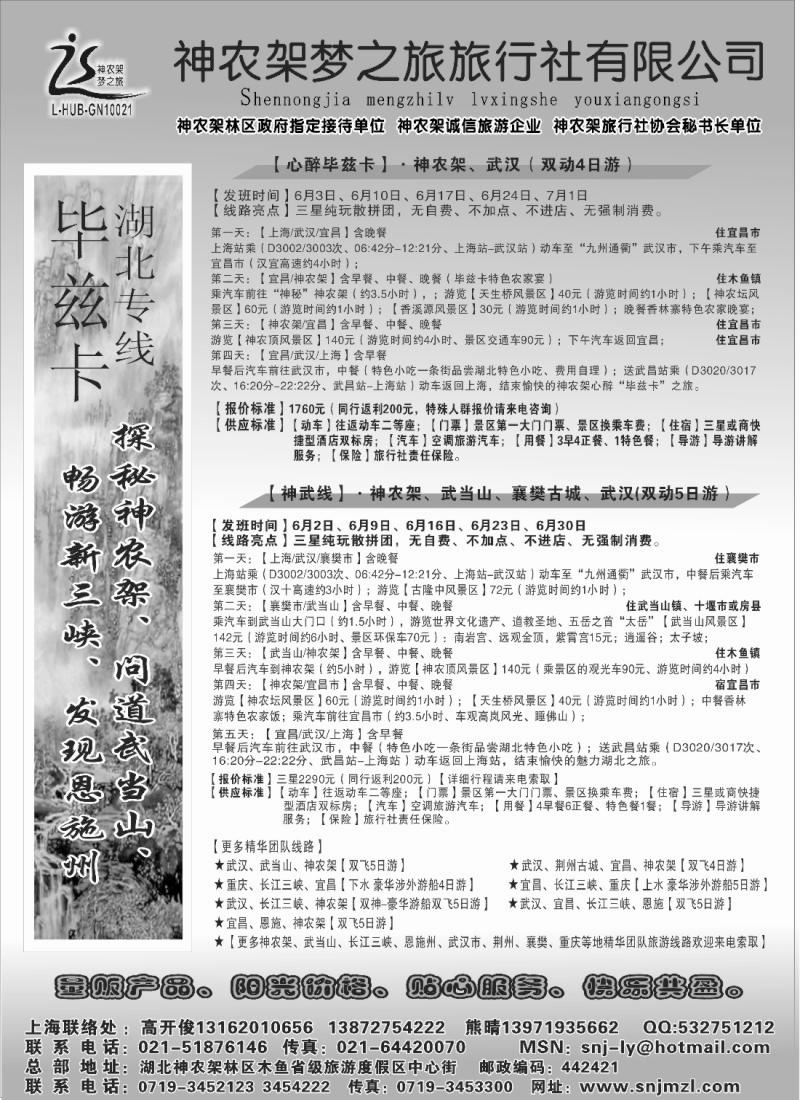 神农架
梦之旅
L-HUB-GN10021
神农架梦之旅旅行社有限公司
Shennongjia mengzhilv lvxingshe youxiangongsi
神农架林区政府指定接待单位 神农架诚信旅游企业 神农架旅行社协会秘书长单位
湖北专线
毕兹卡
探秘神农架、问道武当山、
畅游新三峡、发现恩施州
【心醉毕兹卡】·神农架、武汉（双动4日游）
【发班时间】6月3日、6月10日、6月17日、6月24日、7月1日
【线路亮点】三星纯玩散拼团，无自费、不加点、不进店、无强制消费。
第一天：【上海/武汉/宜昌】含晚餐 住宜昌市
上海站乘（D3002/3003次、06:42分-12:21分、上海站-武汉站）动车至“九州通衢”武汉市，下午乘汽车至
宜昌市（汉宜高速约4小时）；
第二天：【宜昌/神农架】含早餐、中餐、晚餐（毕兹卡特色农家宴） 住木鱼镇
乘汽车前往“神秘”神农架（约3.5小时），；游览【天生桥风景区】40元（游览时间约1小时）；【神农坛风
景区】60元（游览时间约1小时）；【香溪源风景区】30元（游览时间约1小时）；晚餐香林寨特色农家晚宴；
第三天：【神农架/宜昌】含早餐、中餐、晚餐 住宜昌市
游览【神农顶风景区】140元（游览时间约4小时、景区交通车90元）；下午汽车返回宜昌； 住宜昌市
第四天：【宜昌/武汉/上海】含早餐
早餐后汽车前往武汉市，中餐（特色小吃一条街品尝湖北特色小吃、费用自理）；送武昌站乘（D3020/3017
次、16:20分-22:22分、武昌站-上海站）动车返回上海，结束愉快的神农架心醉“毕兹卡”之旅。
【报价标准】1760元（同行返利200元，特殊人群报价请来电咨询）
【供应标准】【动车】往返动车二等座；【门票】景区第一大门门票、景区换乘车费；【住宿】三星或商快
捷型酒店双标房；【汽车】空调旅游汽车；【用餐】3早4正餐、1特色餐；【导游】导游讲解
服务；【保险】旅行社责任保险。
【神武线】·神农架、武当山、襄樊古城、武汉(双动5日游）
【发班时间】6月2日、6月9日、6月16日、6月23日、6月30日
【线路亮点】三星纯玩散拼团，无自费、不加点、不进店、无强制消费。
第一天：【上海/武汉/襄樊市】含晚餐 住襄樊市
上海站乘（D3002/3003次、06:42分-12:21分、上海站-武汉站）动车至“九州通衢”武汉市，中餐后乘汽车
至襄樊市（汉十高速约3小时）；游览【古隆中风景区】72元（游览时间约1小时）；
第二天：【襄樊市/武当山】含早餐、中餐、晚餐 住武当山镇、十堰市或房县
乘汽车到武当山大门口（约1.5小时），游览世界文化遗产、道教圣地、五岳之首“太岳”【武当山风景区】
142元（游览时间约6小时、景区环保车70元）：南岩宫、远观金顶，紫霄宫15元；逍遥谷；太子坡；
第三天：【武当山/神农架】含早餐、中餐、晚餐 住木鱼镇
早餐后汽车到神农架（约5小时），游览【神农顶风景区】140元（乘景区的观光车90元、游览时间约4小时）
第四天：【神农架/宜昌市】含早餐、中餐、晚餐 宿宜昌市
游览【神农坛风景区】60元（游览时间约1小时）；【天生桥风景区】40元（游览时间约1小时）；中餐香林
寨特色农家饭；乘汽车前往宜昌市（约3.5小时、车观高岚风光、睡佛山）；
第五天：【宜昌/武汉/上海】含早餐
早餐后汽车前往武汉市，中餐（特色小吃一条街品尝湖北特色小吃）；送武昌站乘（D3020/3017次、
16:20分-22:22分、武昌站-上海站）动车返回上海站，结束愉快的魅力湖北之旅。
【报价标准】三星2290元（同行返利200元）【详细行程请来电索取】
【供应标准】【动车】往返动车二等座；【门票】景区第一大门门票、景区换乘车费；【住宿】三星或商快捷
型酒店双标房；【汽车】空调旅游汽车；【用餐】4早餐6正餐、特色餐1餐；【导游】导游讲解
服务；【保险】旅行社责任保险。
【更多精华团队线路】
★武汉、武当山、神农架【双飞5日游】 ★武汉、荆州古城、宜昌、神农架【双飞4日游】
★重庆、长江三峡、宜昌【下水 豪华涉外游船4日游】 ★宜昌、长江三峡、重庆【上水 豪华涉外游船5日游】
★武汉、长江三峡、神农架【双神-豪华游船双飞5日游】 ★武汉、宜昌、长江三峡、恩施【双飞5日游】
★宜昌、恩施、神农架【双飞5日游】
★【更多神农架、武当山、长江三峡、恩施州、武汉市、荆州、襄樊、重庆等地精华团队旅游线路欢迎来电索取】
量贩产品。阳光价格。贴心服务。快乐共盈。
上海联络处：高开俊13162010656 13872754222 熊晴13971935662 QQ:532751212
联系电话：021-51876146 传真：021-64420070 MSN：snj-ly@hotmail.com
总部地址：湖北神农架林区木鱼省级旅游度假区中心街 邮政编码：442421
联系电话：0719-3452123 3454222 传真：0719-3453300 网址：www.snjmzl.com